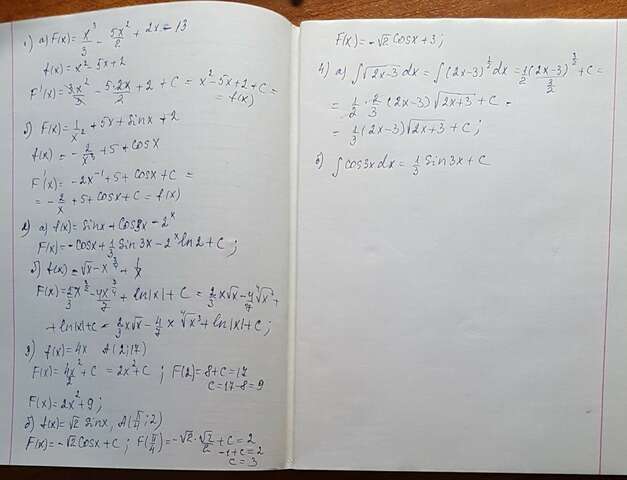 1) a) F(x) = x³/3 - 5x²/2 + 2x - 13
f(x) = x² - 5x + 2
F'(x) = 3x²/3 - 5·2x/2 + 2 + C = x² - 5x + 2 + C =
= f(x)
б) F(x) = 1/x² + 5x + sinx + 2
f(x) = - 2/x³ + 5 + cosx
F'(x) = -2x⁻¹ + 5 + cosx + C =
= - 2/x + 5 + cosx + C = f(x)
2) a) f(x) = sinx + cos3x - 2ˣ
F(x) = -cosx + 1/3 sin3x - 2ˣ ln2 + C;
б) f(x) = √x - x^(3/4) + 1/x
F(x) = 2/3 x^(3/2) - 4x^(7/4)/7 + ln|x| + C = 2/3 x√x - 4/7 ⁴√x⁷ +
+ ln|x| + C = 2/3 x√x - 4/7 x ⁴√x³ + ln|x| + C;
3) f(x) = 4x A(2;17)
F(x) = 4x²/2 + C = 2x² + C; F(2) = 8 + C = 17
C = 17 - 8 = 9
F(x) = 2x² + 9;
б) f(x) = √2 sinx, A(π/4; 2)
F(x) = -√2 cosx + C; F(π/4) = -√2·√2/2 + C = 2
-1 + C = 2
C = 3
F(x) = -√2 cosx + 3;
4) a) ∫√(2x-3) dx = ∫(2x-3)^(1/2) dx = 1/2 (2x-3)^(3/2)/(3/2) + C =
= 1/2 · 2/3 (2x-3)√(2x+3) + C =
= 1/3 (2x-3)√(2x+3) + C;
б) ∫cos3x dx = 1/3 sin3x + C